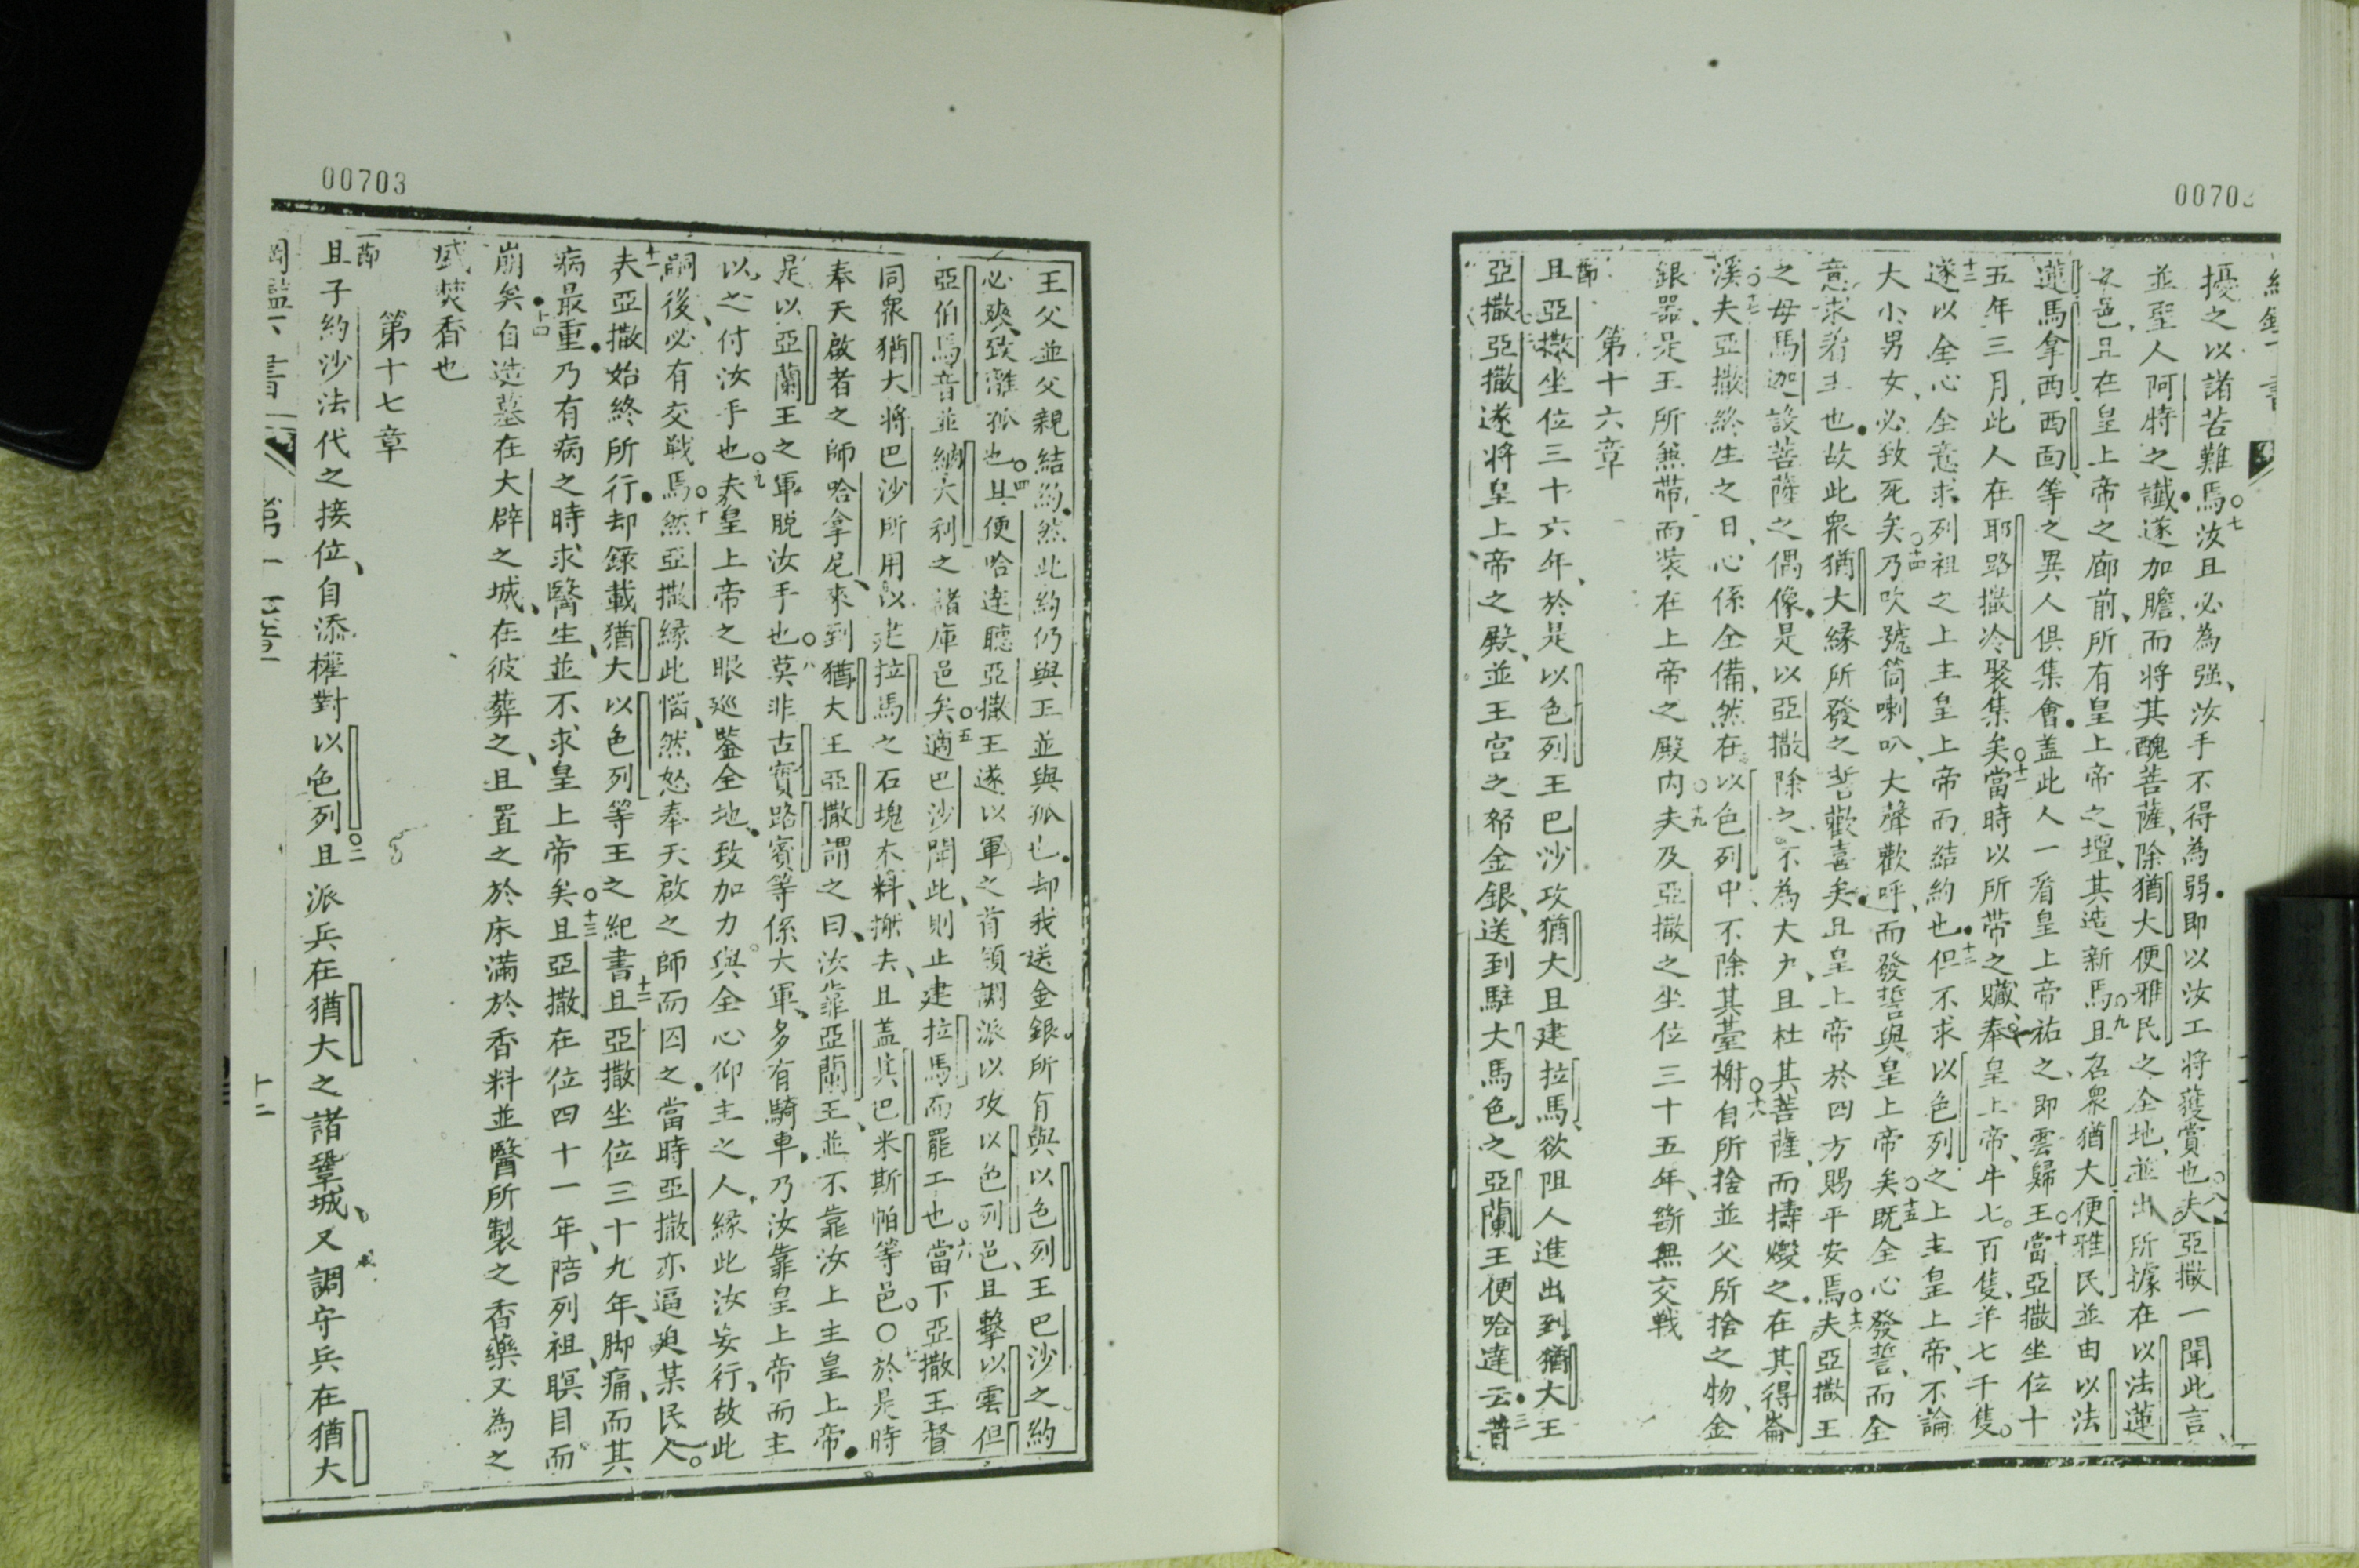 00702
擾之以諸苦難焉○七汝且必為强、汝手不得為弱即以汝工將獲賞也○八夫亞撒一聞此言、
並聖人阿時之讖遂加膽而將其醜菩薩、除猶大便雅民之全地、並出所據在以法蓮
之邑、且在皇上帝之廊前、所有皇上帝之壇、其造新焉○九且召眾猶大便雅民並由以法
蓮馬拿西西面等之異人俱集會盖此人一看皇上帝祐之、即雲歸王○十當亞撒坐位十
五年三月、此人在耶路撒冷聚集矣○十一當時以所帶之贜、奉皇上帝、牛七百隻、羊七千隻。
十二遂以全心全意求列祖之上主皇上帝而結約也十三但不求以色列之上主皇上帝、不論
大小男女、必致死矣○十四乃吹號筒喇叭、大聲歡呼、而發誓與皇上帝矣○十五既全心發誓、而全
意求着主也故此眾猶大緣所發之誓歡喜矣且皇上帝於四方賜平安焉○十六夫亞撒王
之母馬迦設菩薩之偶像是以亞撒除之、不為大、且杜其菩薩、而擣燬之在其得崙
溪○十七夫亞撒終生之日、心係全備、然在以色列中、不除其臺榭○十八自所捨並父所捨之物、金
銀器、是王所無帶而裝在上帝之殿內○十九夫及亞撒之坐位三十五年、斷無交戰
第十六章
節且亞撒坐位三十六年、於是以色列王巴沙攻猶大且建拉馬、欲阻人進出到猶大王
亞撒亞撒遂將皇上帝之殿、並王宫之帑金銀、送到駐大馬色之亞蘭王便哈達云三昔
00703
王父並父親結約然此約仍與王並與孤也却我送金銀所有與以色列王巴沙之約
必爽、致離孤也○四且便哈達聽亞撒王遂以軍之首領調派以攻以色列邑、且擊以雲但
亞伯馬音並納大利之諸庫邑矣○五適巴沙聞此、則止建拉馬而罷工也○六當下亞撒王督
同眾猶大將巴沙所用以建拉馬之石塊木料、搬去、且盖其巴米斯帕等邑○七於是時
奉天啟者之師哈拿尼、來到猶大王亞撒謂之曰、汝靠亞蘭王、並不靠汝上主皇上帝
是以亞蘭王之軍脱汝手也○八莫非古實路賓等係大軍、多有騎車、乃汝靠皇上帝而主
以之付汝手也○九夫皇上帝之眼廵鑒全地、致加力與全心仰主之人、緣此汝妄行、故此
嗣後必有交戰焉○十然亞撒緣此惱、然怒奉天啟之師而囚之當時亞撒亦逼廹某民人。
十一夫亞撒始終所行却錄載猶大以色列等王之紀書十二且亞撒坐位三十九年、脚痛、而其
病最重乃有病之時求醫生、並不求皇上帝矣○十三且亞撒在位四十一年、陪列祖、瞑目而
崩矣十四自造墓在大辟之城、在彼葬之、且置之於床滿於香料並醫所製之香藥又為之
盛焚香也
第十七章
節且子約沙法代之接位、自添權對以色列○二且派兵在猶大之諸鞏城、又調守兵在猶大
十二